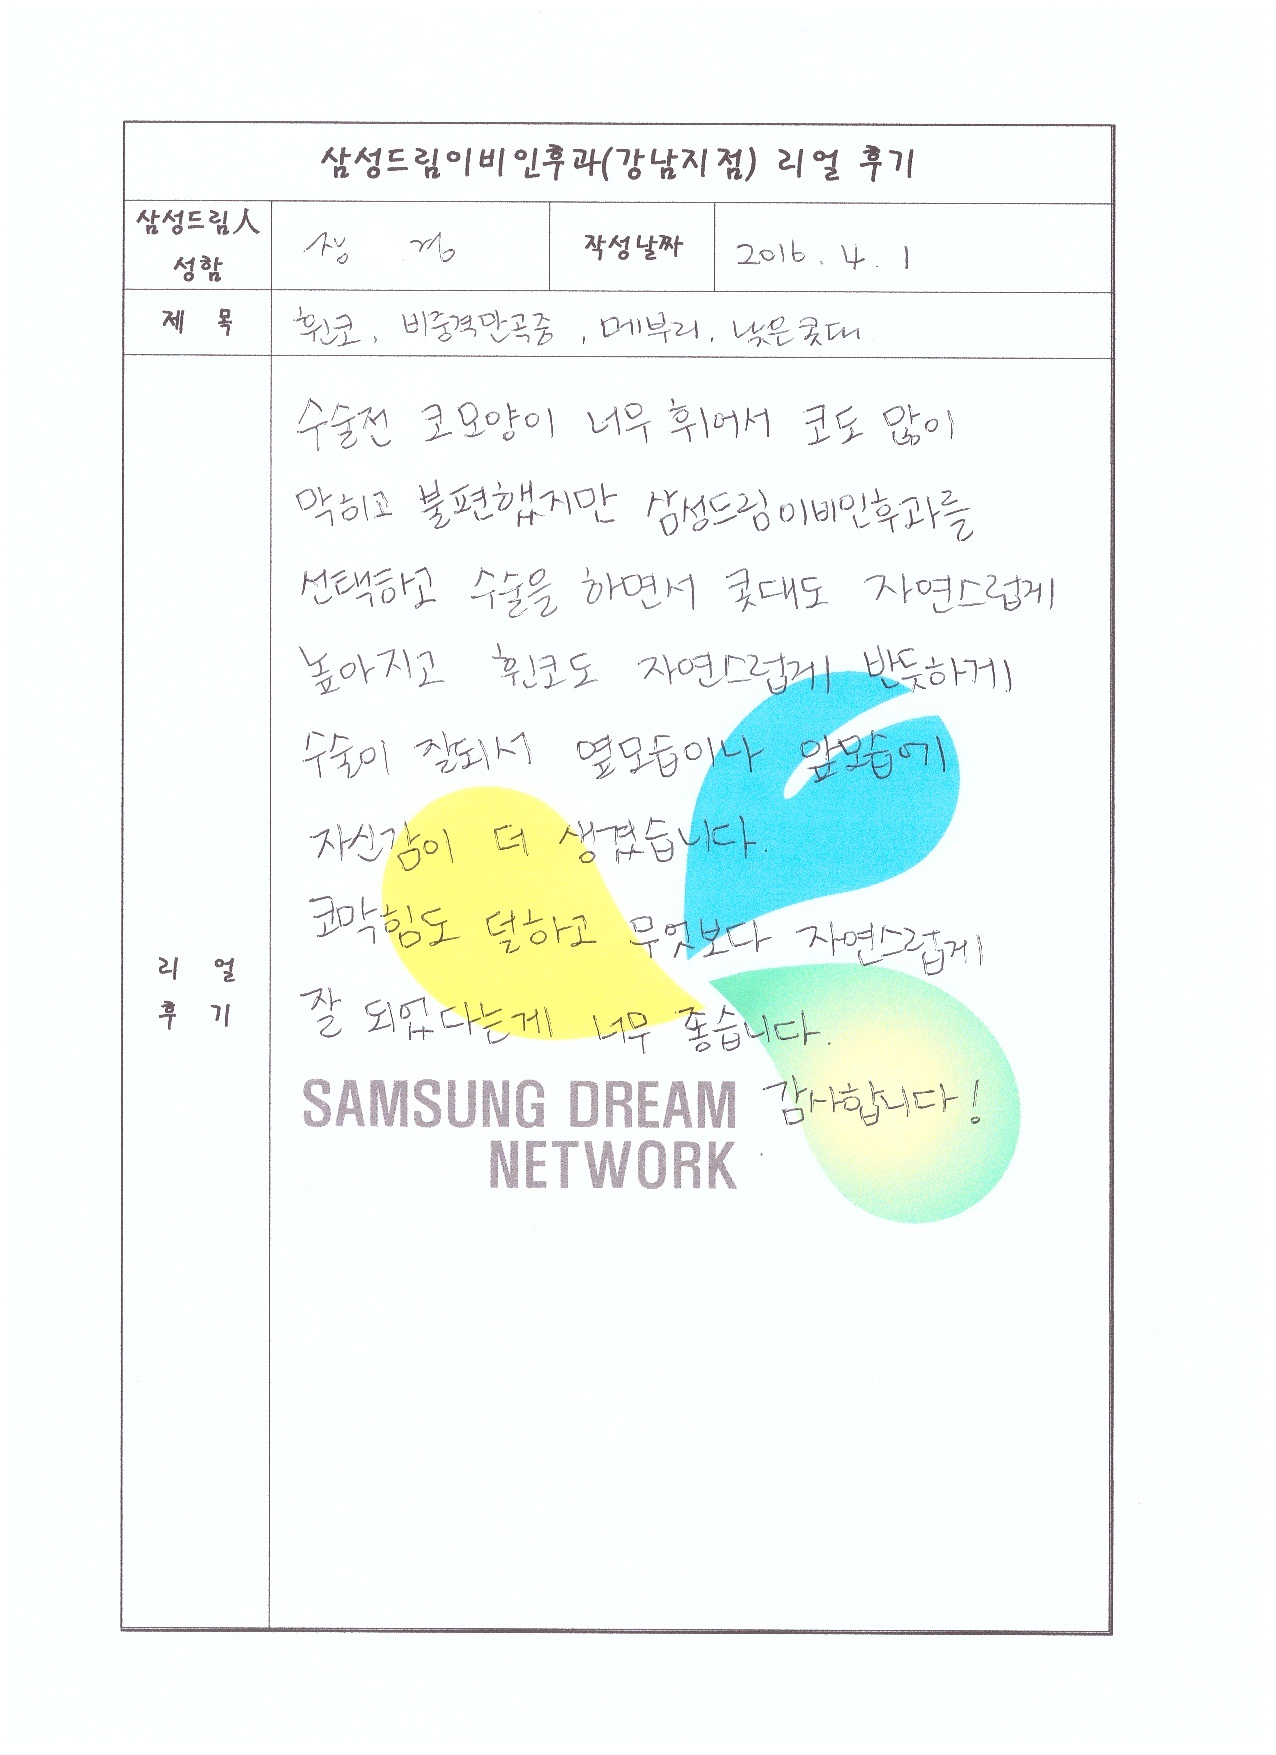 삼성드림이비인후과(강남지점) 리얼 후기
삼성드림人 성함
작성날짜 2016. 4. 1
제 목 휜코, 비중격만곡증, 메부리, 낮은콧대
수술전 코모양이 너무 휘어서 코도 많이
막히고 불편했지만 삼성드림이비인후과를
선택하고 수술을 하면서 콧대도 자연스럽게
높아지고 휜코도 자연스럽게 반듯하게
수술이 잘되서 옆모습이나 앞모습에
자신감이 더 생겼습니다.
코막힘도 덜하고 무엇보다 자연스럽게
리 얼
후 기
잘 되었다는게 너무 좋습니다.
감사합니다!
SAMSUNG DREAM
NETWORK